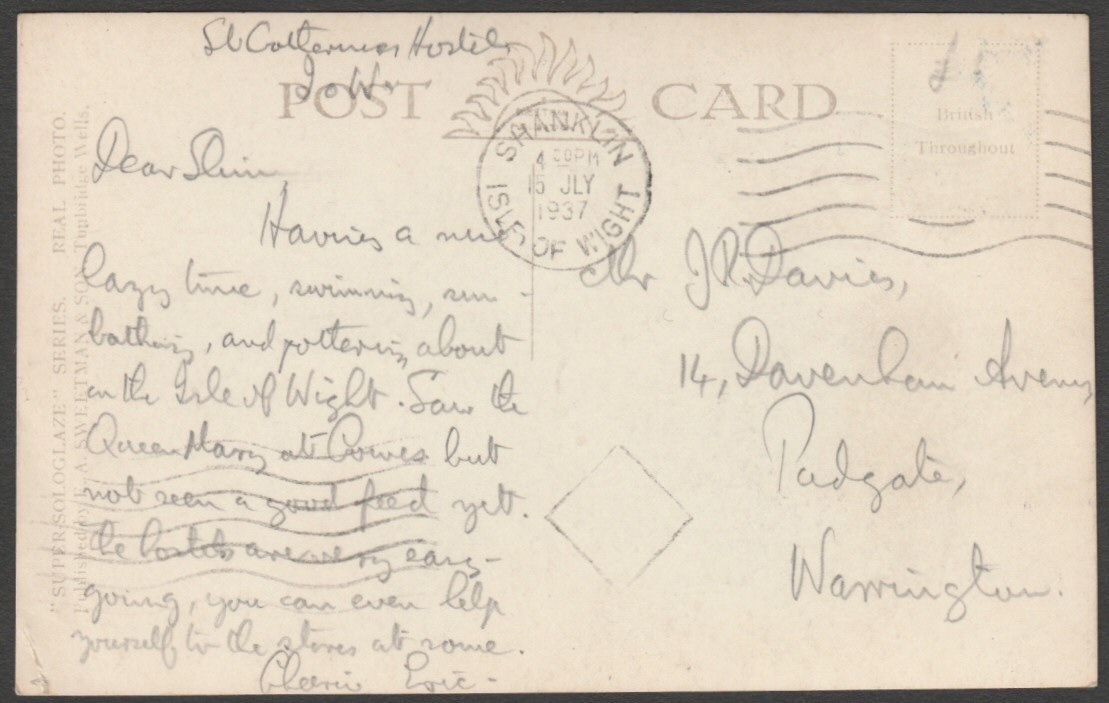 St Catherines Hostel,
I o W.
POST CARD
SHANKLIN
4 30 PM
15 JLY
1937
ISLE OF WIGHT
British
Throughout
Dear Slim,
Having a nice
lazy time, swimming, sun-
bathing, and pottering about
on the Isle of Wight. Saw the
Queen Mary at Cowes but
not seen a good feed yet.
The hostels are very easy-
going, you can even help
yourself to the stores at some.
Cheerio Eric-
Mr J.R. Davies,
14, Davenham Avenue
Padgate,
Warrington.
"SUPER-SOLOGLAZE" SERIES. REAL PHOTO.
Published by A SWEETMAN & SON, Tunbridge Wells.